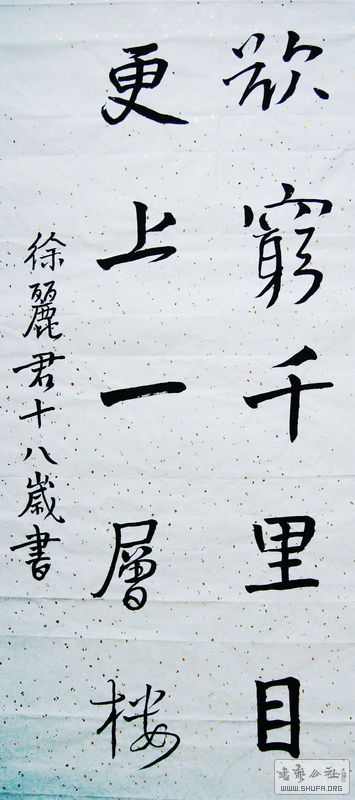 欲窮千里目
更上一層楼
徐麗君十八歲書
書藝公社
WWW.SHUFA.ORG